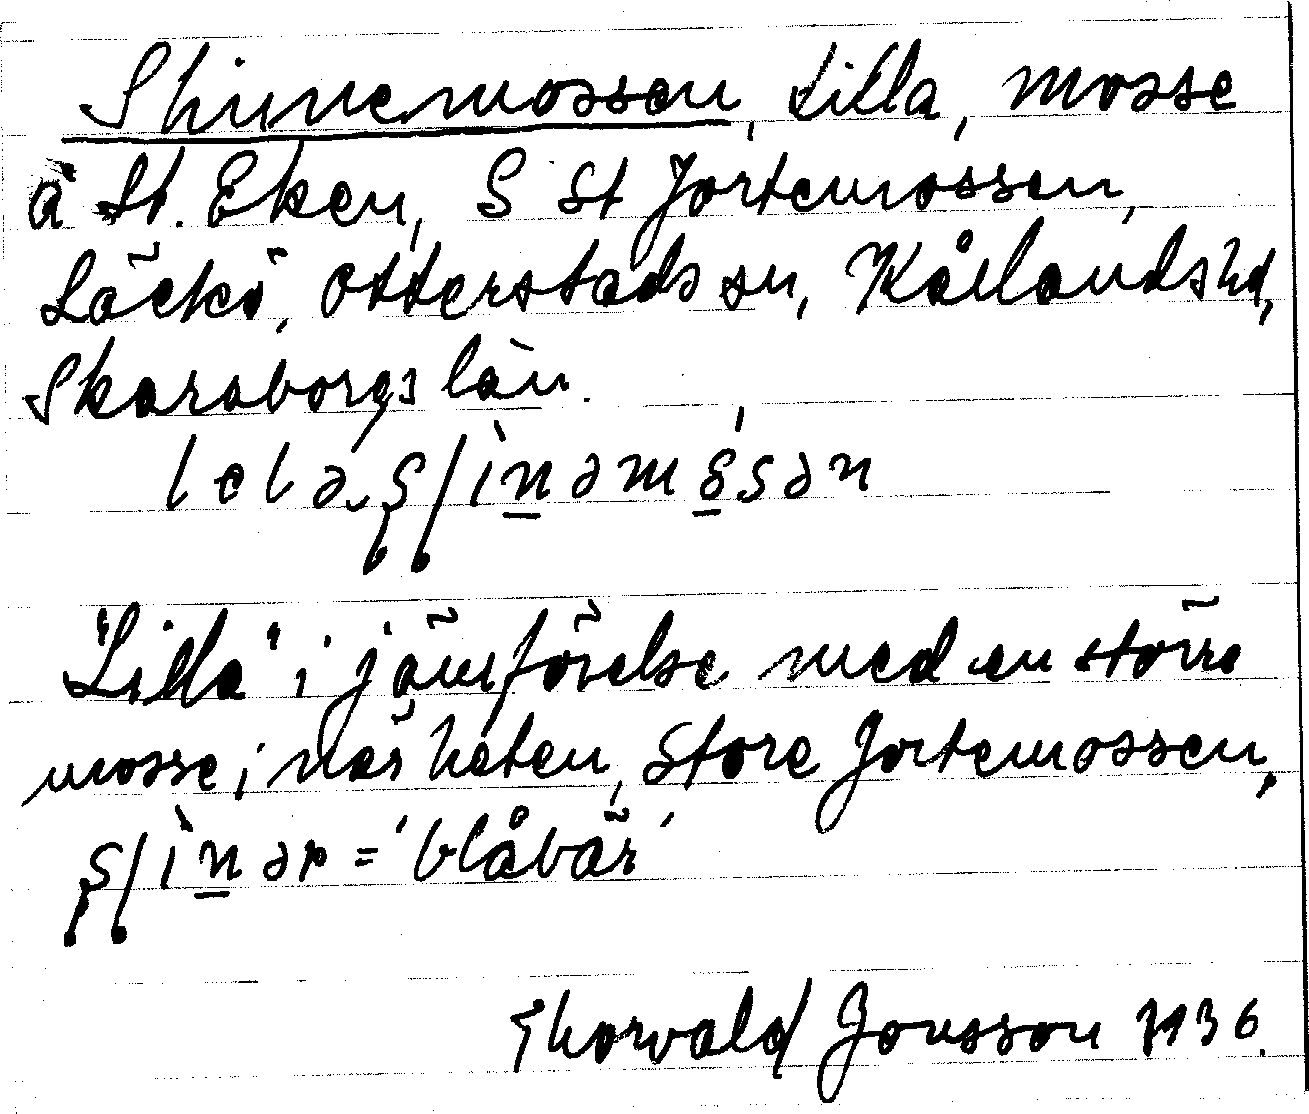 Skinnemossen, Lilla, mosse
å St. Eken, S St Jortemossen,
Läckö, Otterstads sn, Kållands hd,
Skaraborgs län.
"Lilla" i jämförelse med en större
mosse i närheten, Store Jortemossen,
= 'blåbär'
Thorvald Jonsson 1936.